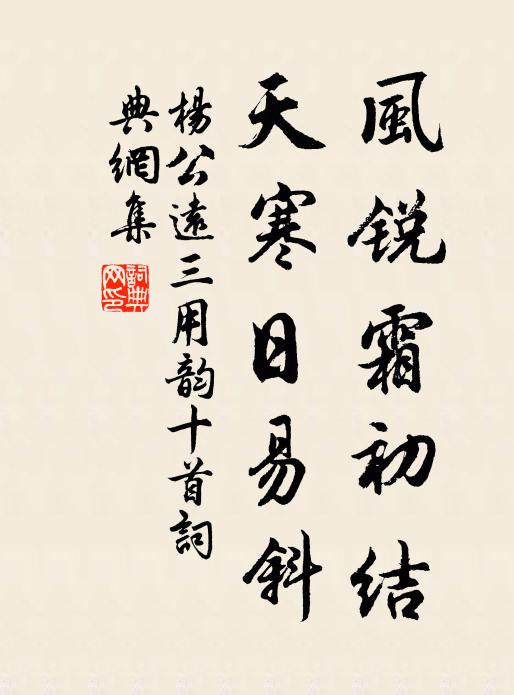 風銳霜初結
天寒日易斜
楊公遠三用韵十首詞
典網集
詞典
网印